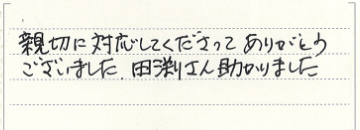 親切に対応してくださって ありがとう
ございました。田渕さん助かりました